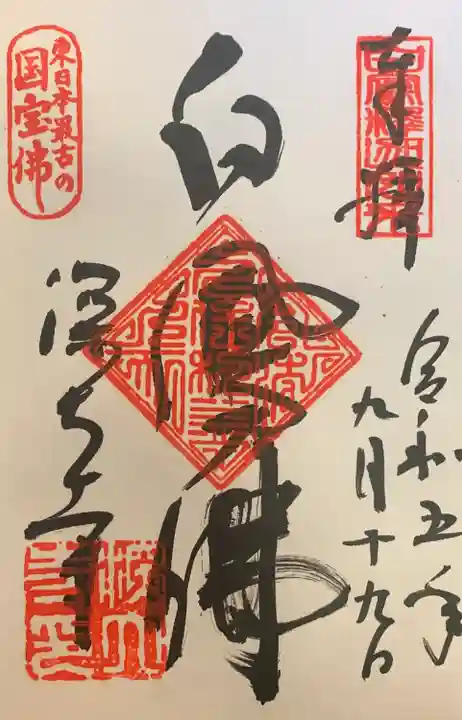 奉拝
令和五年
九月十九日
白鳳佛
深大寺
東日本最古の
国宝佛